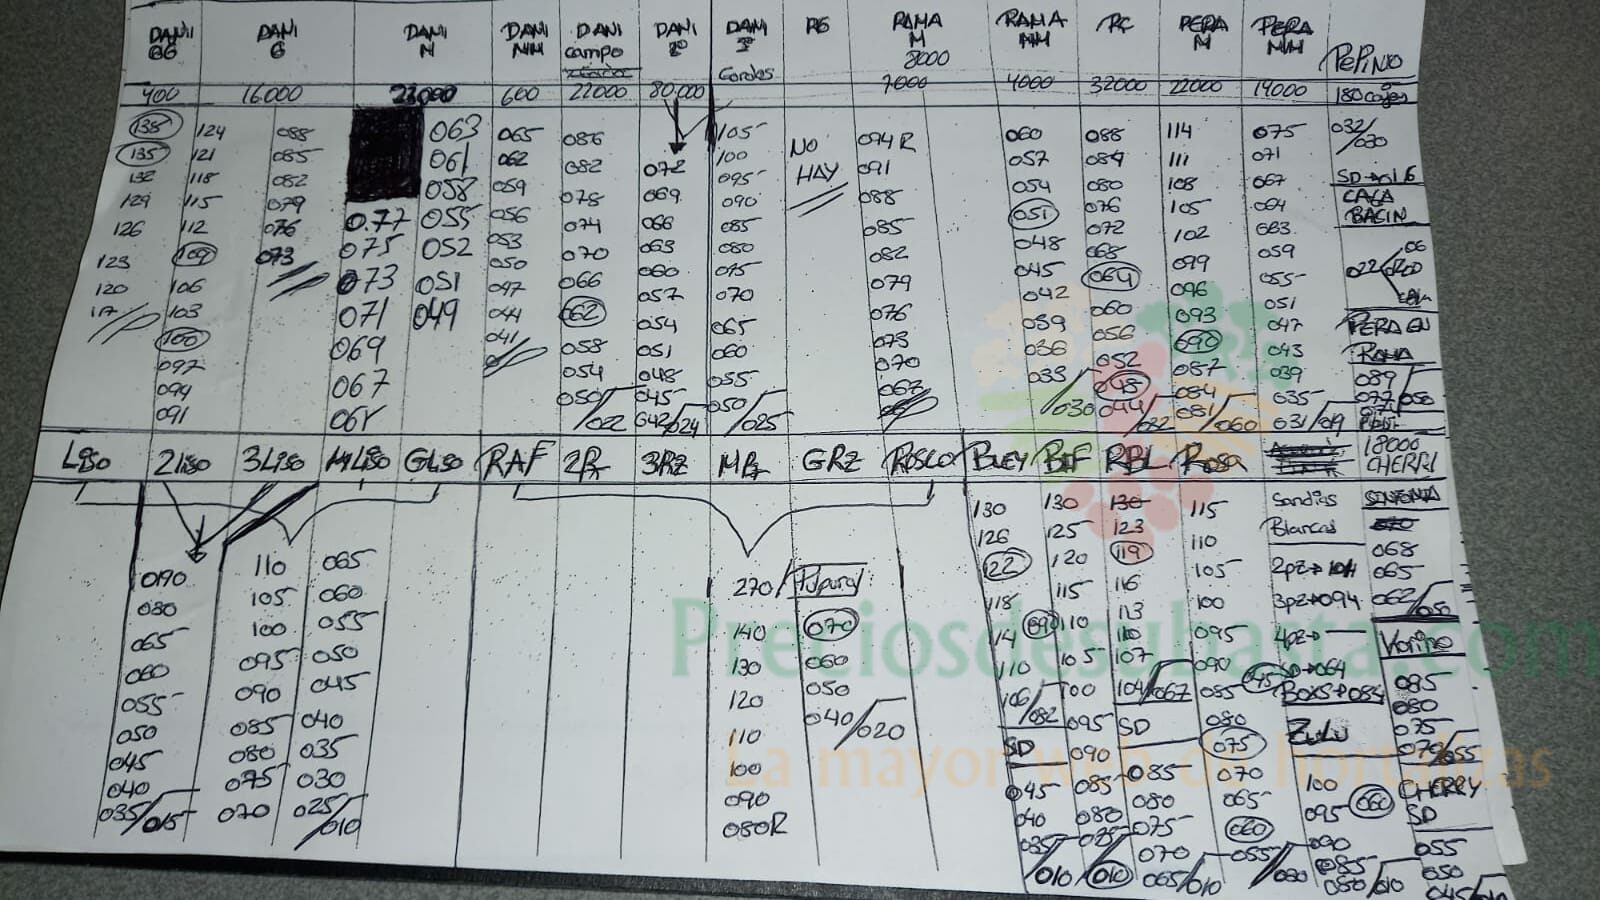 DANI GG DANI G DANI M DANI MM DANI campo DANI 2º DANI 3º Gordos RG RAMA M 8000 RAMA MM RC PERA M PERA MM PEPINO
400 16000 22000 600 22000 80.000 7000 4000 32000 22000 14000 180 cajas
138 124 088 063 065 086 105 NO 094R 060 088 114 075 032/030
135 121 085 061 062 082 072 100 HAY 091 057 084 111 071
132 118 082 058 059 078 069 095 088 054 080 108 067 SD→016
129 115 079 0.77 055 056 074 066 090 085 051 076 105 064 CAÇA
126 112 076 075 052 053 070 063 085 082 048 072 102 063 BACIN
123 109 073 073 051 050 066 060 080 079 045 068 099 059
120 106 071 049 047 062 057 075 076 042 064 096 055 022
117 103 069 044 058 054 070 073 039 060 093 051
100 067 041 054 051 065 070 036 056 090 047 PERA EN
097 050/022 048 060 067 033/030 052 087 043 RAMA
094 045 055 048 084 039 089
091 042/024 050/025 044/032 081/060 035 077/050
031/019
Liso 2Liso 3Liso MLiso GLiso RAF 2Rz 3RZ MRz GRZ ROSCO BUEY BIF RBL Rosa 18000 CHERRI
130 130 130 115 Sandias SINFONIA
126 125 123 110 Blancas
0190 110 065 122 120 119 105 2pz→104 068
080 105 060 270/Pulpural 118 115 116 100 3pz→094 065
065 100 055 140 070 114 090 110 113 095 4pz→— 062/050
060 095 050 130 060 110 105 110 090 SD→064 Korino
055 090 045 120 050 106/082 100 107 085 045 BOXS→084 095
050 085 040 110 040/020 SD 095 104/067 080 ZULU 080
045 080 035 100 090 SD 075 075
040 075 030 090 045 085 085 070 100 070/055
035/015 070 025/010 080R 040 080 080 065 095 060 CHERRY
035/010 075/010 075 060 090 SD
070 055/030 085 055
065/010 080/010 050
045/010